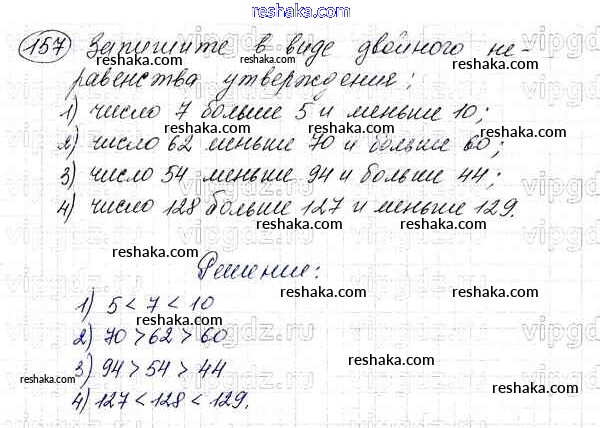 reshaka.com
157 Запишите в виде двойного не-
reshaka.com
равенства утверждения:
1) число 7 больше 5 и меньше 10;
reshaka.com reshaka.com reshaka.com
2) число 62 меньше 70 и больше 60;
reshaka.com reshaka.com reshaka.com
3) число 54 меньше 94 и больше 44;
reshaka.com reshaka.com
4) число 128 больше 127 и меньше 129.
reshaka.com reshaka.com
vipgdz.ru vipgdz.ru
reshaka.com reshaka.com
Решение:
reshaka.com
1) 5 < 7 < 10
reshaka.com
2) 70 > 62 > 60
reshaka.com reshaka.com
3) 94 > 54 > 44
reshaka.com reshaka.com
4) 127 < 128 < 129.
reshaka.com